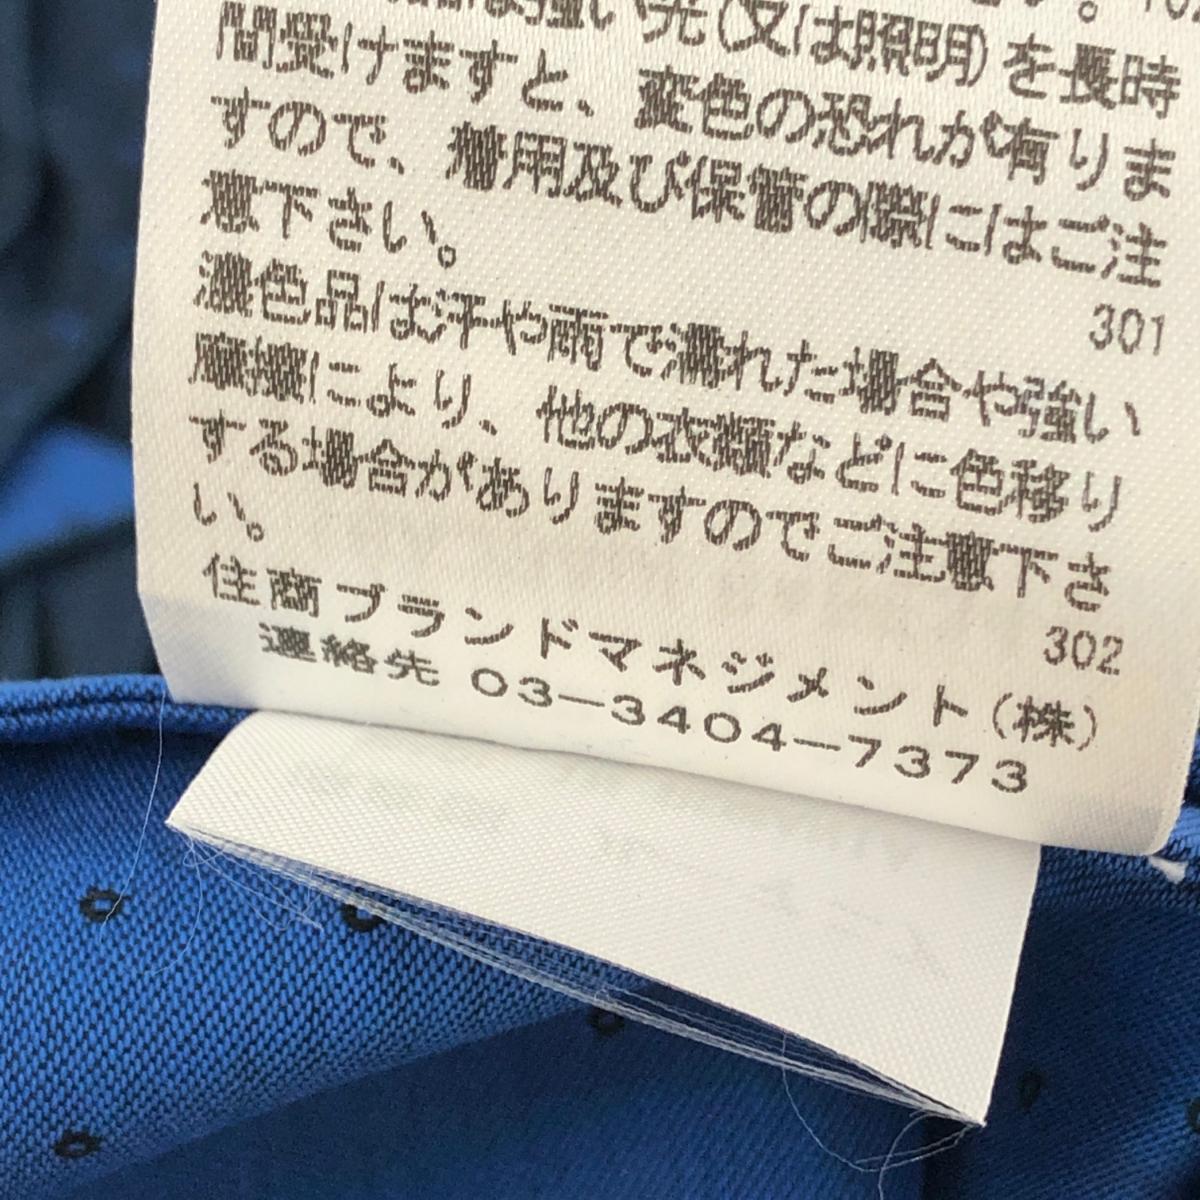 は強い光(又は照明)を長時
間受けますと、変色の恐れが有りま
すので、着用及び保管の際にはご注
意下さい。
301
濃色品は汗や雨で濡れた場合や強い
摩擦により、他の衣類などに色移り
する場合がありますのでご注意下さ
い。
302
住商ブランドマネジメント(株)
連絡先 03-3404-7373